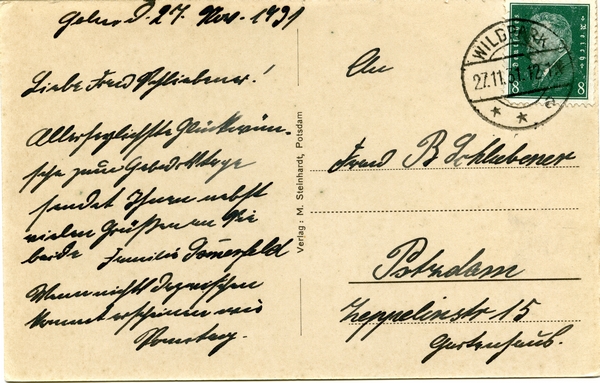 27. Nov. 1931
Liebe Frau Schliebener!
Allerherzlichste Glückwün-
sche zum Geburtstage
sendet Ihnen nebst
vielen Grüßen an Sie
beide Familie
Wenn nichts dazwischen
kommt erscheinen wir
Verlag: M. Steinhardt, Potsdam
WILDPARK
27.11.31.12
a
8 8
An
Frau B Schliebener
Potsdam
Zeppelinstr 15
Gartenhaus.